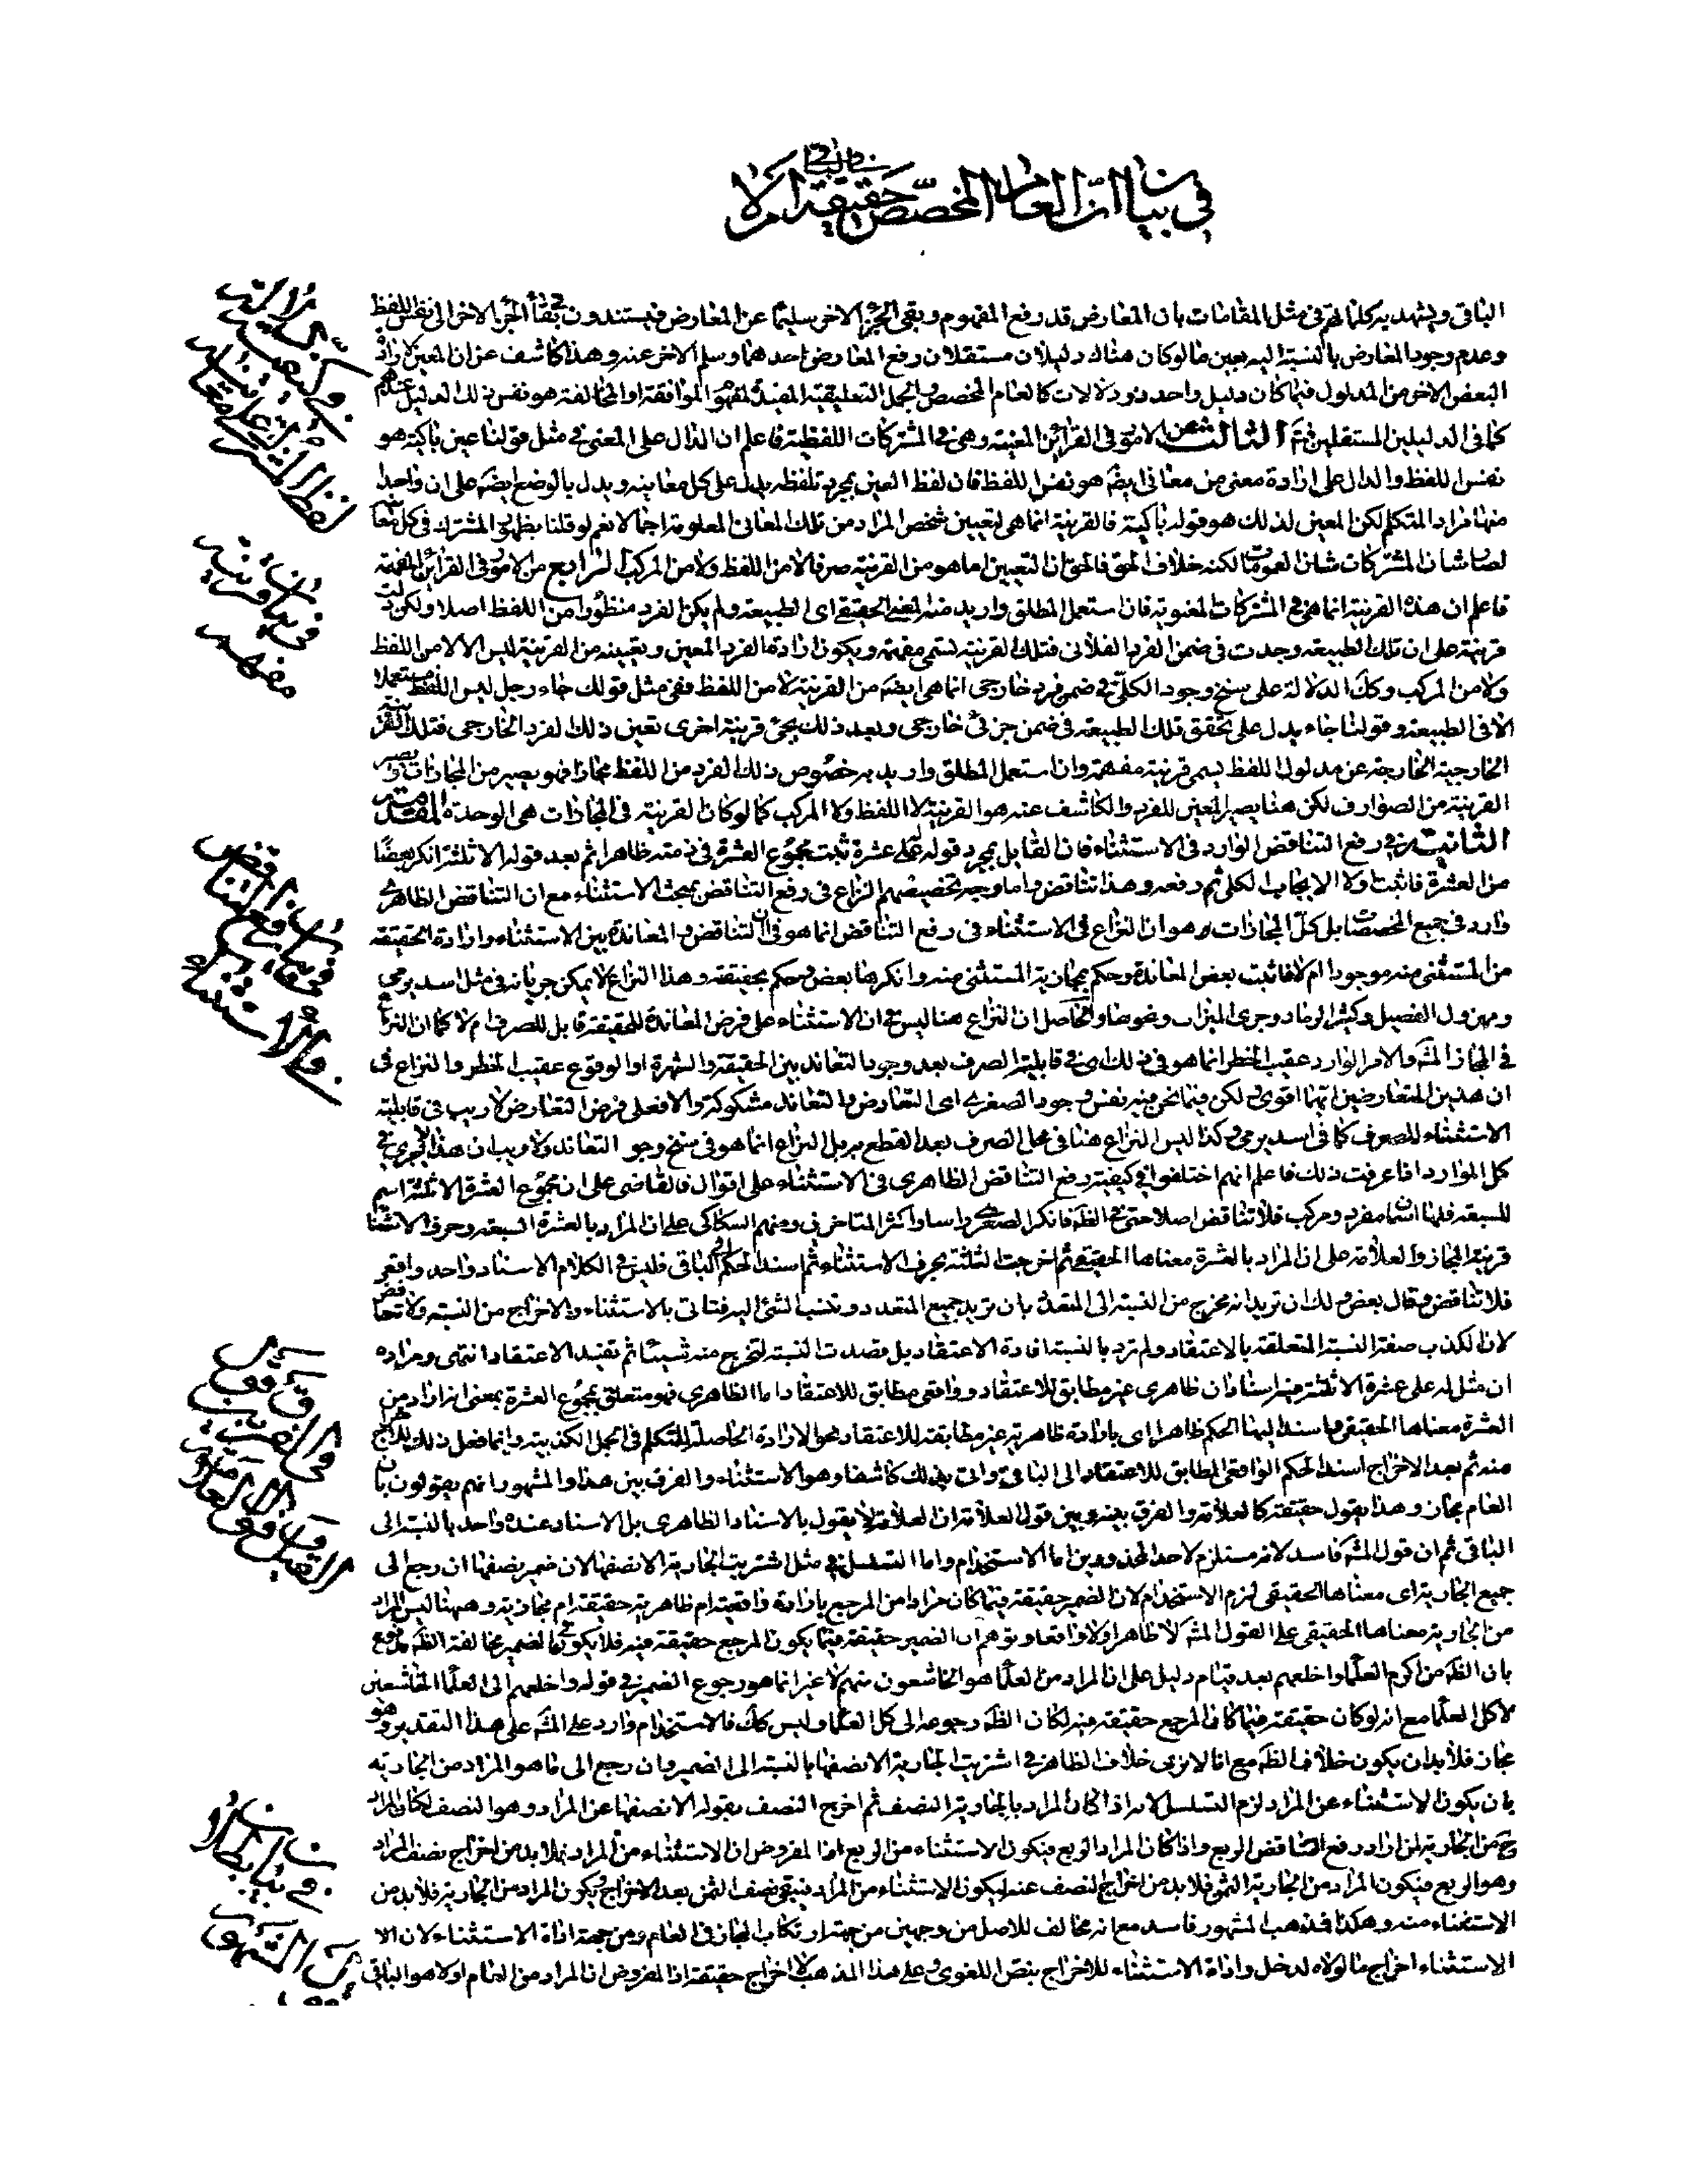 في بيان ان العام المخصص حقيقة في الباقي ام لا
الباقي ويشهد به كلماتهم في مثل المقامات بان المعارض قد رفع المفهوم وبقى الجزء الاخر سليما عن المعارض فيستندون في بقاء الجزء الاخر الى نفس اللفظ
وعدم وجود المعارض بالنسبة اليه بعين ما لو كان هناك دليلان مستقلان رفع المعارض احدهما وسلم الاخر عنه وهذا كاشف عن ان المعين لارادة
البعض الاخر من المدلول فيما كان دليل واحد ذو دلالات كالعام المخصص والجمل التعليقية المفيدة لمفهوم الموافقة او المخالفة هو نفس ذلك الدليل عندهم
كما في الدليلين المستقلين ثم الثالث من الامور في القرائن المعينة وهي في المشتركات اللفظية فاعلم ان الدال على المعنى في مثل قولنا عين باكية هو
نفس اللفظ والدال على ارادة معنى من معاني ايضه هو نفس اللفظ فان لفظ العين بمجرد تلفظه يدل على كل معانيه ويدل بالوضع ايضه على ان واحدا
منها مراد المتكلم لكن المعين لذلك هو قوله باكية فالقرينة انما هي لتعيين شخص المراد من تلك المعاني المعلومة اجمالا نعم لو قلنا بظهور المشترك في كل معانيه
لصار شان المشتركات شان العمومات لكنه خلاف الحق فالحق ان التعيين اما هو من القرينة صرفا لا من اللفظ ولا من المركب الرابع من الامور في القرائن المفهمة
فاعلم ان هذه القرينة انما هي في المشتركات المعنوية فان استعمل المطلق واريد منه المعنى الحقيقي اي الطبيعة ولم يكن الفرد منظورا من اللفظ اصلا ولكن دلت
قرينة على ان تلك الطبيعة وجدت في ضمن الفرد الفلاني فتلك القرينة تسمى مفهمة ويكون ارادة الفرد المعين وتعيينه من القرينة ليس الا لا من اللفظ
ولا من المركب وكك الدلالة على سنخ وجود الكلي في ضمن فرد خارجي انما هي ايضه من القرينة لا من اللفظ ففي مثل قولك جاء رجل ليس اللفظ مستعملا
الا في الطبيعة وقولنا جاء يدل على تحقق تلك الطبيعة في ضمن جزئي خارجي وبعد ذلك يجئ قرينة اخرى تعين ذلك الفرد الخارجي فتلك القرينة
الخارجية الخارجة عن مدلول اللفظ يسمى قرينة مفهمة وان استعمل المطلق واريد به خصوص ذلك الفرد من اللفظ مجازا فهو يصير من المجازات وتصير
القرينة من الصوارف لكن هنا يصير المعين للفرد والكاشف عنه هو القرينة لا اللفظ ولا المركب كما لو كان القرينة في المجازات هي الوحدة المقدمة
الثانية في رفع التناقض الوارد في الاستثناء فان القايل بمجرد قوله له علي عشرة ثبت مجموع العشرة في ذمته ظاهرا ثم بعد قوله الا ثلثة انكر بعضا
من العشرة فاثبت اولا الايجاب الكلي ثم رفعه وهذا تناقض واما وجه تخصيصهم النزاع في رفع التناقض بمبحث الاستثناء مع ان التناقض الظاهري
وارد في جميع المخصصات بل كل المجازات وهو ان النزاع في الاستثناء في رفع التناقض انما هو في ان التناقض والمعاندة بين الاستثناء وارادة الحقيقة
من المستثنى منه موجود ام لا فاثبت بعض المعاندة وحكم بمجازية المستثنى منه وانكرها بعض وحكم بحقيقته وهذا النزاع لا يمكن جريانه في مثل اسد يرمي
ومهزول الفصيل وكثير الرماد وجرى الميزاب ونحوها والحاصل ان النزاع هنا ليس في ان الاستثناء على فرض المعاندة للحقيقة قابل للصرف ام لا كما ان النزاع
في المجاز المشه والامر الوارد عقيب الحظر انما هو في ذلك اي في قابلية الصرف بعد وجود التعاند بين الحقيقة والشهرة او الوقوع عقيب الحظر والنزاع في
ان هذين المتعارضين ايهما اقوى ولكن فيما نحن فيه نفس وجود الصغرى اي التعارض والتعاند مشكوكة والا فعلى فرض التعارض لا ريب في قابلية
الاستثناء للصرف كما في اسد يرمي وكذا ليس النزاع هنا في محل الصرف بعد القطع به بل النزاع انما هو في سنخ وجود التعاند ولا ريب ان هذا لا يجري في
كل الموارد اذا عرفت ذلك فاعلم انهم اختلفوا في كيفية رفع التناقض الظاهري في الاستثناء على اقوال فالقاضي على ان مجموع العشرة الا ثلثة اسم
للسبعة فلها اسمان مفرد ومركب فلا تناقض اصلا حتى في الظه فانكر الصغرى راسا واكثر المتاخرين ومنهم السكاكي على ان المراد بالعشرة السبعة وحرف الاستثناء
قرينة المجاز والعلامة على ان المراد بالعشرة معناها الحقيقي ثم اخرجت الثلثة بحرف الاستثناء ثم اسند الحكم الى الباقي فليس في الكلام الا سناد واحد واقعي
فلا تناقض وقال بعض ولك ان تريد انه مخرج من النسبة الى المتعدد بان تريد جميع المتعدد وتنسب الشئ اليه فتاتي بالاستثناء والاخراج من النسبة ولا تناقض
لان الكذب صفة النسبة المتعلقة بالاعتقاد ولم ترد بالنسبة افادة الاعتقاد بل قصدت النسبة لتخرج منه شيئا ثم تفيد الاعتقاد انتهى ومراده
ان مثل له علي عشرة الا ثلثة فيه اسنادان ظاهري غير مطابق للاعتقاد وواقعي مطابق للاعتقاد اما الظاهري فهو متعلق بمجموع العشرة بمعنى انه اراد من
العشرة معناها الحقيقي واسند اليها الحكم ظاهرا اي بارادة ظاهرية غير مطابقة للاعتقاد نحو الارادة الحاصلة للمتكلم في الجمل الكذبية وانما فعل ذلك للاخراج
منه ثم بعد الاخراج اسند الحكم الواقعي المطابق للاعتقاد الى الباقي واتى بذلك كاشفا وهو الاستثناء والفرق بين هذا والمشهور انهم يقولون بان
العام مجاز وهذا يقول حقيقة كالعلامة والفرق بينه وبين قول العلامة ان العلامة لا يقول بالاسناد الظاهري بل الاسناد عنده واحد بالنسبة الى
الباقي ثم ان قول المشه فاسد لانه مستلزم لاحد المحذورين اما الاستخدام واما التسلسل في مثل اشتريت الجارية الا نصفها لان ضمير نصفها ان رجع الى
جميع الجارية اي معناها الحقيقي لزم الاستخدام لان الضمير حقيقة فيما كان مرادا من المرجع بارادة واقعية ام ظاهرية حقيقة ام مجازية وههنا ليس المراد
من الجارية معناها الحقيقي على القول المشه لا ظاهرا ولا واقعا وتوهم ان الضمير حقيقة فيما يكون المرجع حقيقة فيه فلا يكون في الضمير مخالفة الظه مدفوع
بان الظه من اكرم العلماء واخلعهم بعد قيام دليل على ان المراد من العلماء هو الخاشعون منهم لا غير انما هو رجوع الضمير في قوله واخلعهم الى العلماء الخاشعين
لا كل العلماء مع انه لو كان حقيقة فيما كان المرجع حقيقة فيه لكان الظه رجوعه الى كل العلماء وليس كك فالاستخدام وارد على المشه على هذا التقدير وهو
مجاز فلا بد ان يكون خلاف الظه مع انا لا نرى خلاف الظاهر في اشتريت الجارية الا نصفها بالنسبة الى الضمير وان رجع الى ما هو المراد من الجارية
بان يكون الاستثناء عن المراد لزم التسلسل لانه اذا كان المراد بالجارية النصف ثم اخرج النصف بقوله الا نصفها عن المراد وهو النصف لكان المراد
ح من الجارية لمن اراد رفع التناقض الربع واذا كان المراد الربع فيكون الاستثناء من الربع اذا المفروض ان الاستثناء من المراد فلا بد من اخراج نصف المراد
وهو الربع فيكون المراد من الجارية الثمن فلا بد من اخراج النصف عنه ليكون الاستثناء من المراد فيبقى نصف الثمن بعد الاخراج ويكون المراد من الجارية فلا بد من
الاستثناء منه وهكذا فمذهب المشهور فاسد مع انه مخالف للاصل من وجهين من جهة ارتكاب المجاز في العام ومن جهة اداة الاستثناء لان الا
الاستثناء اخراج ما لولاه لدخل واداة الاستثناء للاخراج بنص اللغوي وعلى هذا المذهب لا اخراج حقيقة اذا المفروض ان المراد من العام اولا هو الباقي
في بيان قرينة
مفهمة
في بيان رفع التناقض
في الاستثناء
في بيان بطلان
المشهور